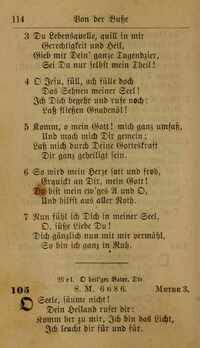 114 Von der Buße
3 Du Lebensquelle, quill in mir
Gerechtigkeit und Heil,
Gieb mir Dein' ganze Tugendzier,
Sei Du nur selbst mein Theil!
4 O Jesu, füll, ach fülle doch
Das Sehnen meiner Seel!
Ich Dich begehr und rufe noch:
Laß fließen Gnadenöl!
5 Komm, o mein Gott! mich ganz umfaß,
Und mach mich Dir gemein;
Laß mich durch Deine Gotteskraft
Dir ganz geheiligt sein.
6 So wird mein Herze satt und froh,
Erquickt an Dir, mein Gott!
Du bist mein ew'ges A und O,
Und hilfst aus aller Noth.
7 Nun fühl ich Dich in meiner Seel,
O, süße Liebe Du!
Dich gänzlich nun mit mir vermähl,
So bin ich ganz in Ruh.
Mel. O heil'ger Vater, Dir.
105 S. M. 6 6 8 6. Metrik 3.
O Seele, säume nicht!
Dein Heiland rufet dir:
Komm her zu mir, Ich bin das Licht,
Ich leucht dir für und für.